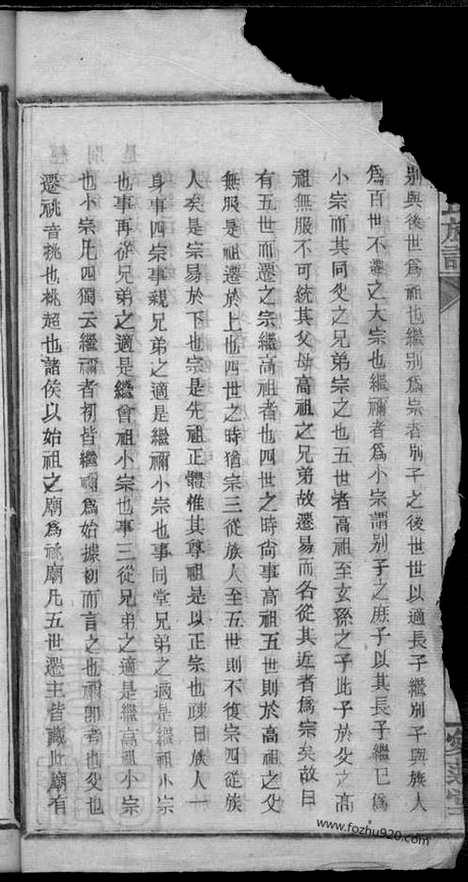 別與後世爲祖也繼別爲宗者別子之後世世以適長子繼別子與族人
爲百世不遷之大宗也繼禰者爲小宗謂別子之庶子以其長子繼已爲
小宗而其同父之兄弟宗之也五世者高祖至玄孫之子此子於父之高
祖無服不可統其父毋高祖之兄弟故遷易而各從其近者爲宗矣故曰
有五世而遷之宗繼高祖者也四世之時尙事高祖五世則於高祖之父
無服是祖遷於上也四世之時猶宗三從族人至五世則不復宗四從族
人矣是宗易於下也宗是先祖正體惟其尊祖是以正宗也疎曰族人一
身事四宗事親兄弟之適是繼禰小宗也事同堂兄弟之適是繼祖小宗
也事再從兄弟之適是繼會祖小宗也事三從兄弟之適是繼高祖小宗
也小宗凡四獨云繼禰者初皆繼禰爲始據初而言之也禰卽者也父也
遷祧音挑也祧超也諸侯以始祖之廟爲祧廟凡五世遷主皆藏此廟有
族譜
www.fozhu920.com